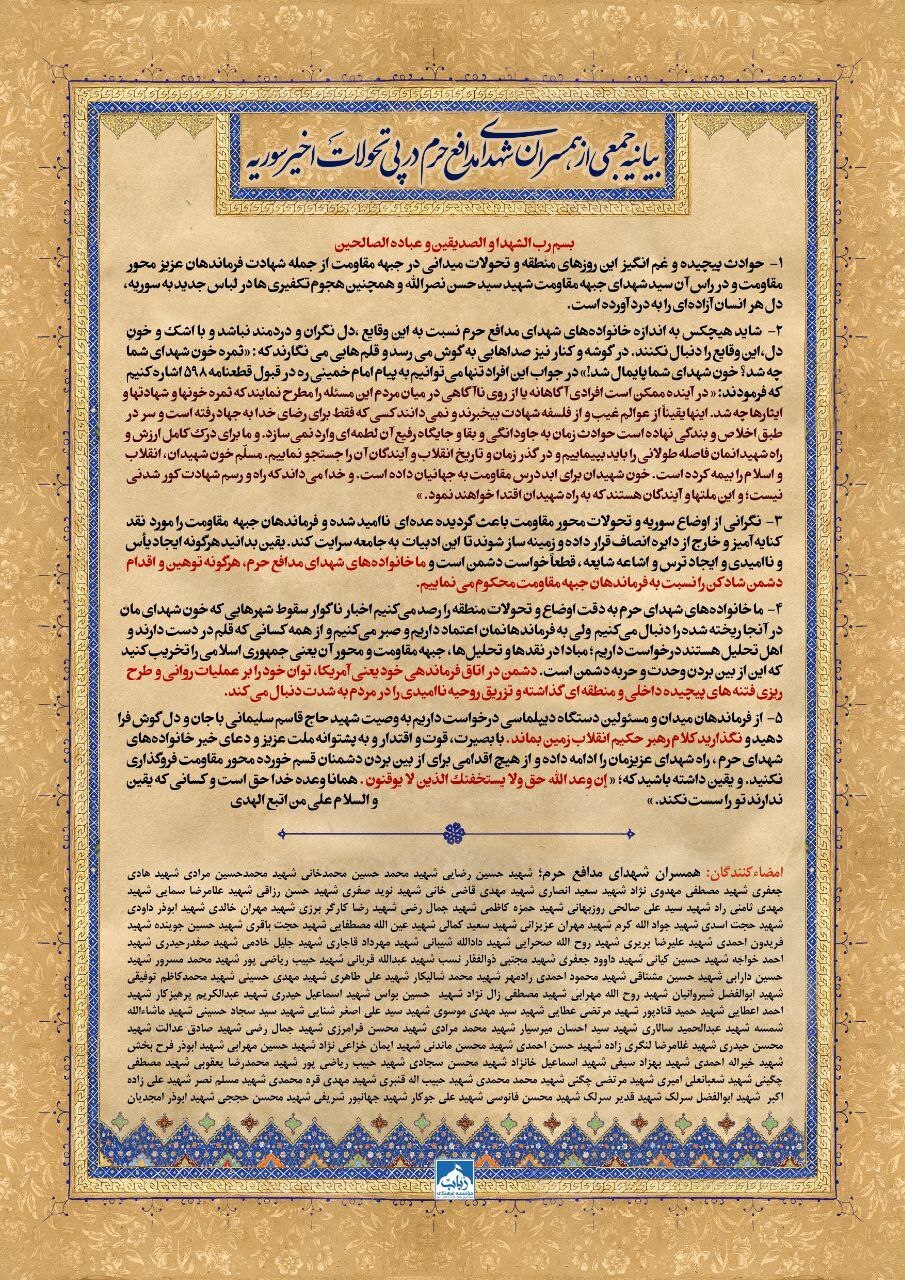 بیانیه جمعی از همسران شهدای مدافع حرم در پی تحولات اخیر سوریه
بسم رب الشهدا و الصدیقین و عباده الصالحین
۱- حوادث پیچیده و غم انگیز این روزهای منطقه و تحولات میدانی در جبهه مقاومت از جمله شهادت فرماندهان عزیز محور
مقاومت و در راس آن سید شهدای جبهه مقاومت شهید سید حسن نصرالله و همچنین هجوم تکفیری ها در لباس جدید به سوریه،
دل هر انسان آزاده‌ای را به درد آورده است.
۲- شاید هیچکس به اندازه خانواده‌های شهدای مدافع حرم نسبت به این وقایع ،دل نگران و دردمند نباشد و با اشک و خونِ
دل،این وقایع را دنبال نکنند. در گوشه و کنار نیز صداهایی به گوش می رسد و قلم هایی می نگارند که : «ثمره خون شهدای شما
چه شد؟ خون شهدای شما پایمال شد!» در جواب این افراد تنها می‌توانیم به پیام امام خمینی ره در قبول قطعنامه ۵۹۸ اشاره کنیم
که فرمودند: « در آینده ممکن است افرادی آگاهانه یا از روی ناآگاهی در میان مردم این مسئله را مطرح نمایند که ثمره خونها و شهادتها و
ایثارها چه شد. اینها یقیناً از عوالم غیب و از فلسفه شهادت بیخبرند و نمی‌دانند کسی که فقط برای رضای خدا به جهاد رفته است و سر در
طبق اخلاص و بندگی نهاده است حوادث زمان به جاودانگی و بقا و جایگاه رفیع آن لطمه ای وارد نمی سازد. و ما برای درک کامل ارزش و
راه شهیدانمان فاصله طولانی را باید بپیماییم و در گذر زمان و تاریخ انقلاب و آیندگان آن را جستجو نماییم. مسلّم خون شهیدان، انقلاب
و اسلام را بیمه کرده است. خون شهیدان برای ابد درس مقاومت به جهانیان داده است. و خدا می‌داند که راه و رسم شهادت کور شدنی
نیست؛ و این ملتها و آیندگان هستند که به راه شهیدان اقتدا خواهند نمود. »
۳- نگرانی از اوضاع سوریه و تحولات محور مقاومت باعث گردیده عده‌ای ناامید شده و فرماندهان جبهه مقاومت را مورد نقد
کنایه‌آمیز و خارج از دایره انصاف قرار داده و زمینه ساز شوند تا این ادبیات به جامعه سرایت کند. یقین بدانید هرگونه ایجاد یأس
و ناامیدی و ایجاد ترس و اشاعه شایعه ، قطعاً خواست دشمن است و ما خانواده‌های شهدای مدافع حرم، هرگونه توهین و اقدام
دشمن شادکن را نسبت به فرماندهان جبهه مقاومت محکوم می‌نماییم.
۴- ما خانواده‌های شهدای حرم به دقت اوضاع و تحولات منطقه را رصد می‌کنیم اخبار ناگوار سقوط شهرهایی که خون شهدای مان
در آنجا ریخته شده را دنبال می‌کنیم ولی به فرماندهانمان اعتماد داریم و صبر می‌کنیم و از همه کسانی که قلم در دست دارند و
اهل تحلیل هستند درخواست داریم؛ مبادا در نقدها و تحلیل‌ها ، جبهه مقاومت و محور آن یعنی جمهوری اسلامی را تخریب کنید
که این از بین بردن وحدت و حربه دشمن است. دشمن در اتاق فرماندهی خود یعنی آمریکا، توان خود را بر عملیات روانی و طرح
ریزی فتنه های پیچیده داخلی و منطقه ای گذاشته و تزریق روحیه ناامیدی را در مردم به شدت دنبال می‌کند.
۵- از فرماندهان میدان و مسئولین دستگاه دیپلماسی درخواست داریم به وصیت شهید حاج قاسم سلیمانی با جان و دل گوش فرا
دهید و نگذارید کلام رهبر حکیم انقلاب زمین بماند. با بصیرت، قوت و اقتدار و به پشتوانه ملت عزیز و دعای خیر خانواده‌های
شهدای حرم ، راه شهدای عزیزمان را ادامه داده و از هیچ اقدامی برای از بین بردن دشمنان قسم خورده محور مقاومت فروگذاری
نکنید. و یقین داشته باشید که؛ « إن وعد الله حق ولا یستخفنك الذین لا یوقنون . همانا وعده خدا حق است و کسانی که یقین
ندارند تو را سست نکند. » و السلام علی من اتبع الهدی
امضاءکنندگان: همسران شهدای مدافع حرم؛ شهید حسین رضایی شهید محمد حسین محمدخانی شهید محمدحسین مرادی شهید هادی
جعفری شهید مصطفی مهدوی نژاد شهید سعید انصاری شهید مهدی قاضی خانی شهید نوید صفری شهید حسن رزاقی شهید غلامرضا سمایی شهید
مهدی ثامنی راد شهید سید علی صالحی روزبهانی شهید حمزه کاظمی شهید جمال رضی شهید رضا کارگر برزی شهید مهران خالدی شهید ابوذر داودی
شهید حجت اسدی شهید جواد الله کرم شهید مهران عزیزانی شهید سعید کمالی شهید عین الله مصطفایی شهید حجت باقری شهید حسین جوینده شهید
فریدون احمدی شهید علیرضا بریری شهید روح الله صحرایی شهید دادالله شیبانی شهید مهرداد قاجاری شهید جلیل خادمی شهید صفدرحیدری شهید
احمد خواجه شهید حسین کیانی شهید داوود جعفری شهید مجتبی ذوالفقار نسب شهید عبدالله قربانی شهید حبیب ریاضی پور شهید محمد مسرور شهید
حسین دارابی شهید حسین مشتاقی شهید محمود احمدی رادمهر شهید محمد شالیکار شهید علی طاهری شهید مهدی حسینی شهید محمدکاظم توفیقی
شهید ابوالفضل شیروانیان شهید روح الله مهرابی شهید مصطفی زال نژاد شهید حسین بواس شهید اسماعیل حیدری شهید عبدالکریم پرهیزکار شهید
احمد اعطایی شهید حمید قنادپور شهید مرتضی عطایی شهید سید مهدی موسوی شهید سید علی اصغر شنایی شهید سید سجاد حسینی شهید ماشاءالله
شمسه شهید عبدالحمید سالاری شهید سید احسان میرسیار شهید محمد مرادی شهید محسن فرامرزی شهید جمال رضی شهید صادق عدالت شهید
محسن حیدری شهید غلامرضا لنگری زاده شهید حسن احمدی شهید محسن ماندنی شهید ایمان خزاعی نژاد شهید حسین مهرابی شهید ابوذر فرح بخش
شهید خیراله احمدی شهید بهزاد سیفی شهید اسماعیل خانزاد شهید محسن سجادی شهید حبیب ریاضی پور شهید محمدرضا یعقوبی شهید مصطفی
چگینی شهید شعبانعلی امیری شهید مرتضی چگنی شهید محمد محمدی شهید حبیب اله قنبری شهید مهدی قره محمدی شهید مسلم نصر شهید علی زاده
اکبر شهید ابوالفضل سرلک شهید قدیر سرلک شهید محسن فانوسی شهید علی جوکار شهید جهانپور شریفی شهید محسن حججی شهید ابوذر امجدیان
مؤسسه فرهنگی